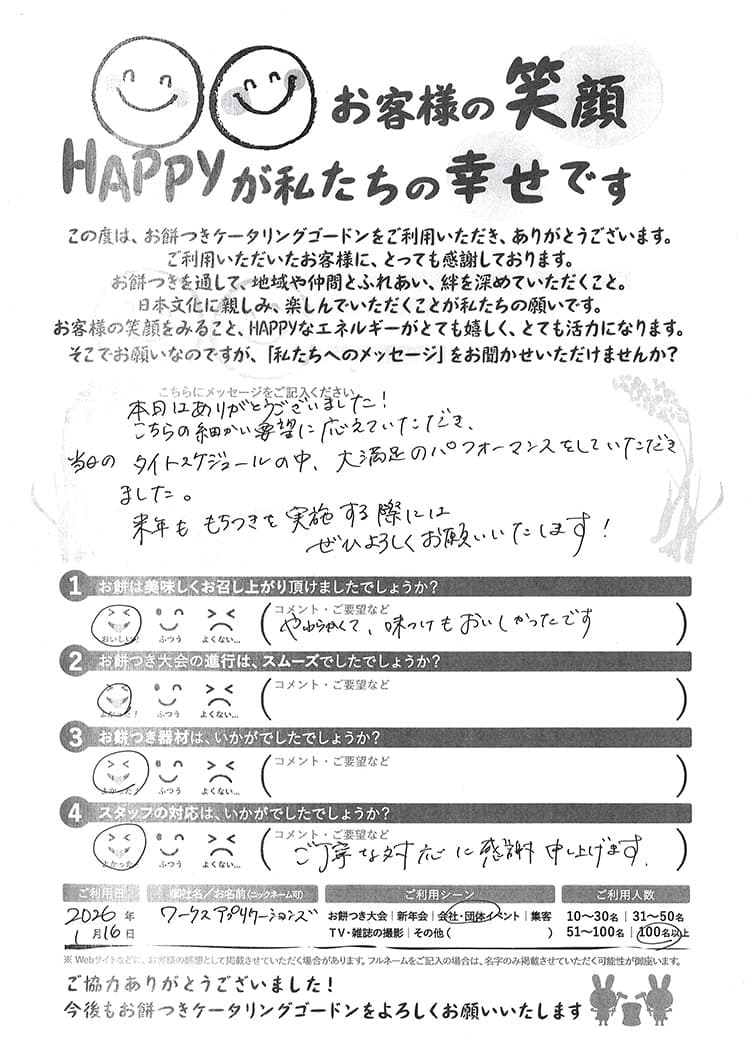 お客様の笑顔
HAPPYが私たちの幸せです
この度は、お餅つきケータリングゴードンをご利用いただき、ありがとうございます。
ご利用いただいたお客様に、とっても感謝しております。
お餅つきを通して、地域や仲間とふれあい、絆を深めていただくこと。
日本文化に親しみ、楽しんでいただくことが私たちの願いです。
お客様の笑顔をみること、HAPPYなエネルギーがとても嬉しく、とても活力になります。
そこでお願いなのですが、「私たちへのメッセージ」をお聞かせいただけませんか?
こちらにメッセージをご記入ください
本日はありがとうございました!
こちらの細かい要望に応えていただき、
当日の タイトスケジュールの中、大満足のパフォーマンスをしていただき
ました。
来年も もちつきを実施する際には
ぜひよろしくお願いいたします!
1 お餅は美味しくお召し上がり頂けましたでしょうか?
おいしい! ふつう よくない…
コメント・ご要望など
やわらかくて、味つけもおいしかったです
2 お餅つき大会の進行は、スムーズでしたでしょうか?
よかった! ふつう よくない…
コメント・ご要望など
3 お餅つき器材は、いかがでしたでしょうか?
よかった! ふつう よくない…
コメント・ご要望など
4 スタッフの対応は、いかがでしたでしょうか?
よかった! ふつう よくない…
コメント・ご要望など
ご丁寧な対応に感謝申し上げます。
ご利用日 御社名/お名前(ニックネーム可) ご利用シーン ご利用人数
2026年 ワークスアプリケーションズ お餅つき大会|新年会|会社・団体イベント|集客 10~30名|31~50名
1月16日 TV・雑誌の撮影|その他( ) 51~100名|100名以上
※ Webサイトなどに、お客様の感想として掲載させていただく場合があります。フルネームをご記入の場合は、名字のみ掲載させていただく可能性が御座います。
ご協力ありがとうございました!
今後もお餅つきケータリングゴードンをよろしくお願いいたします